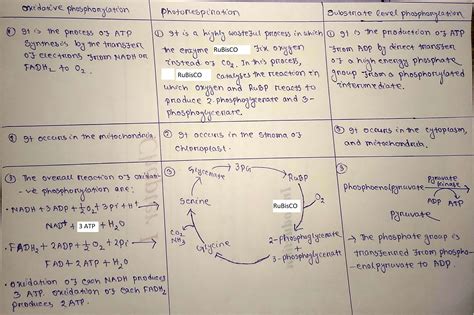 Oxidative phosphorylation
Photorespiration
Substrate level phosphorylation
① It is the process of ATP
synthesis by the transfer
of electrons from NADH or
FADH2 to O2.
① It is a highly wasteful process in which
the enzyme RuBisCO fix oxygen
instead of CO2. In this process,
RuBisCO catalyses the reaction in
which oxygen and RuBP reacts to
produce 2-phosphoglycerate and 3-
phosphoglycerate.
① It is the production of ATP
from ADP by direct transfer
of a high energy phosphate
group from a phosphorylated
intermediate.
② It occurs in the mitochondria.
② It occurs in the stroma of
chloroplast.
② It occurs in the cytoplasm,
and mitochondria.
③ The overall reaction of oxidati-
-ve phosphorylation are:
• NADH + 3 ADP + ½O2 + 3Pi + H+
NAD+ + 3 ATP + H2O
• FADH2 + 2ADP + ½O2 + 2Pi
FAD + 2 ATP + H2O
• Oxidation of each NADH produces
3 ATP. Oxidation of each FADH2
produces 2 ATP.
③
Glycerate
3PG
RuBP
RuBisCO
O2
2-phosphoglycolate
+
3-phosphoglycerate
Glycine
CO2
NH3
Serine
③
Phosphoenolpyruvate
Pyruvate
kinase
ADP ATP
Pyruvate
→ The phosphate group is
transferred from phospho-
-enolpyruvate to ADP.